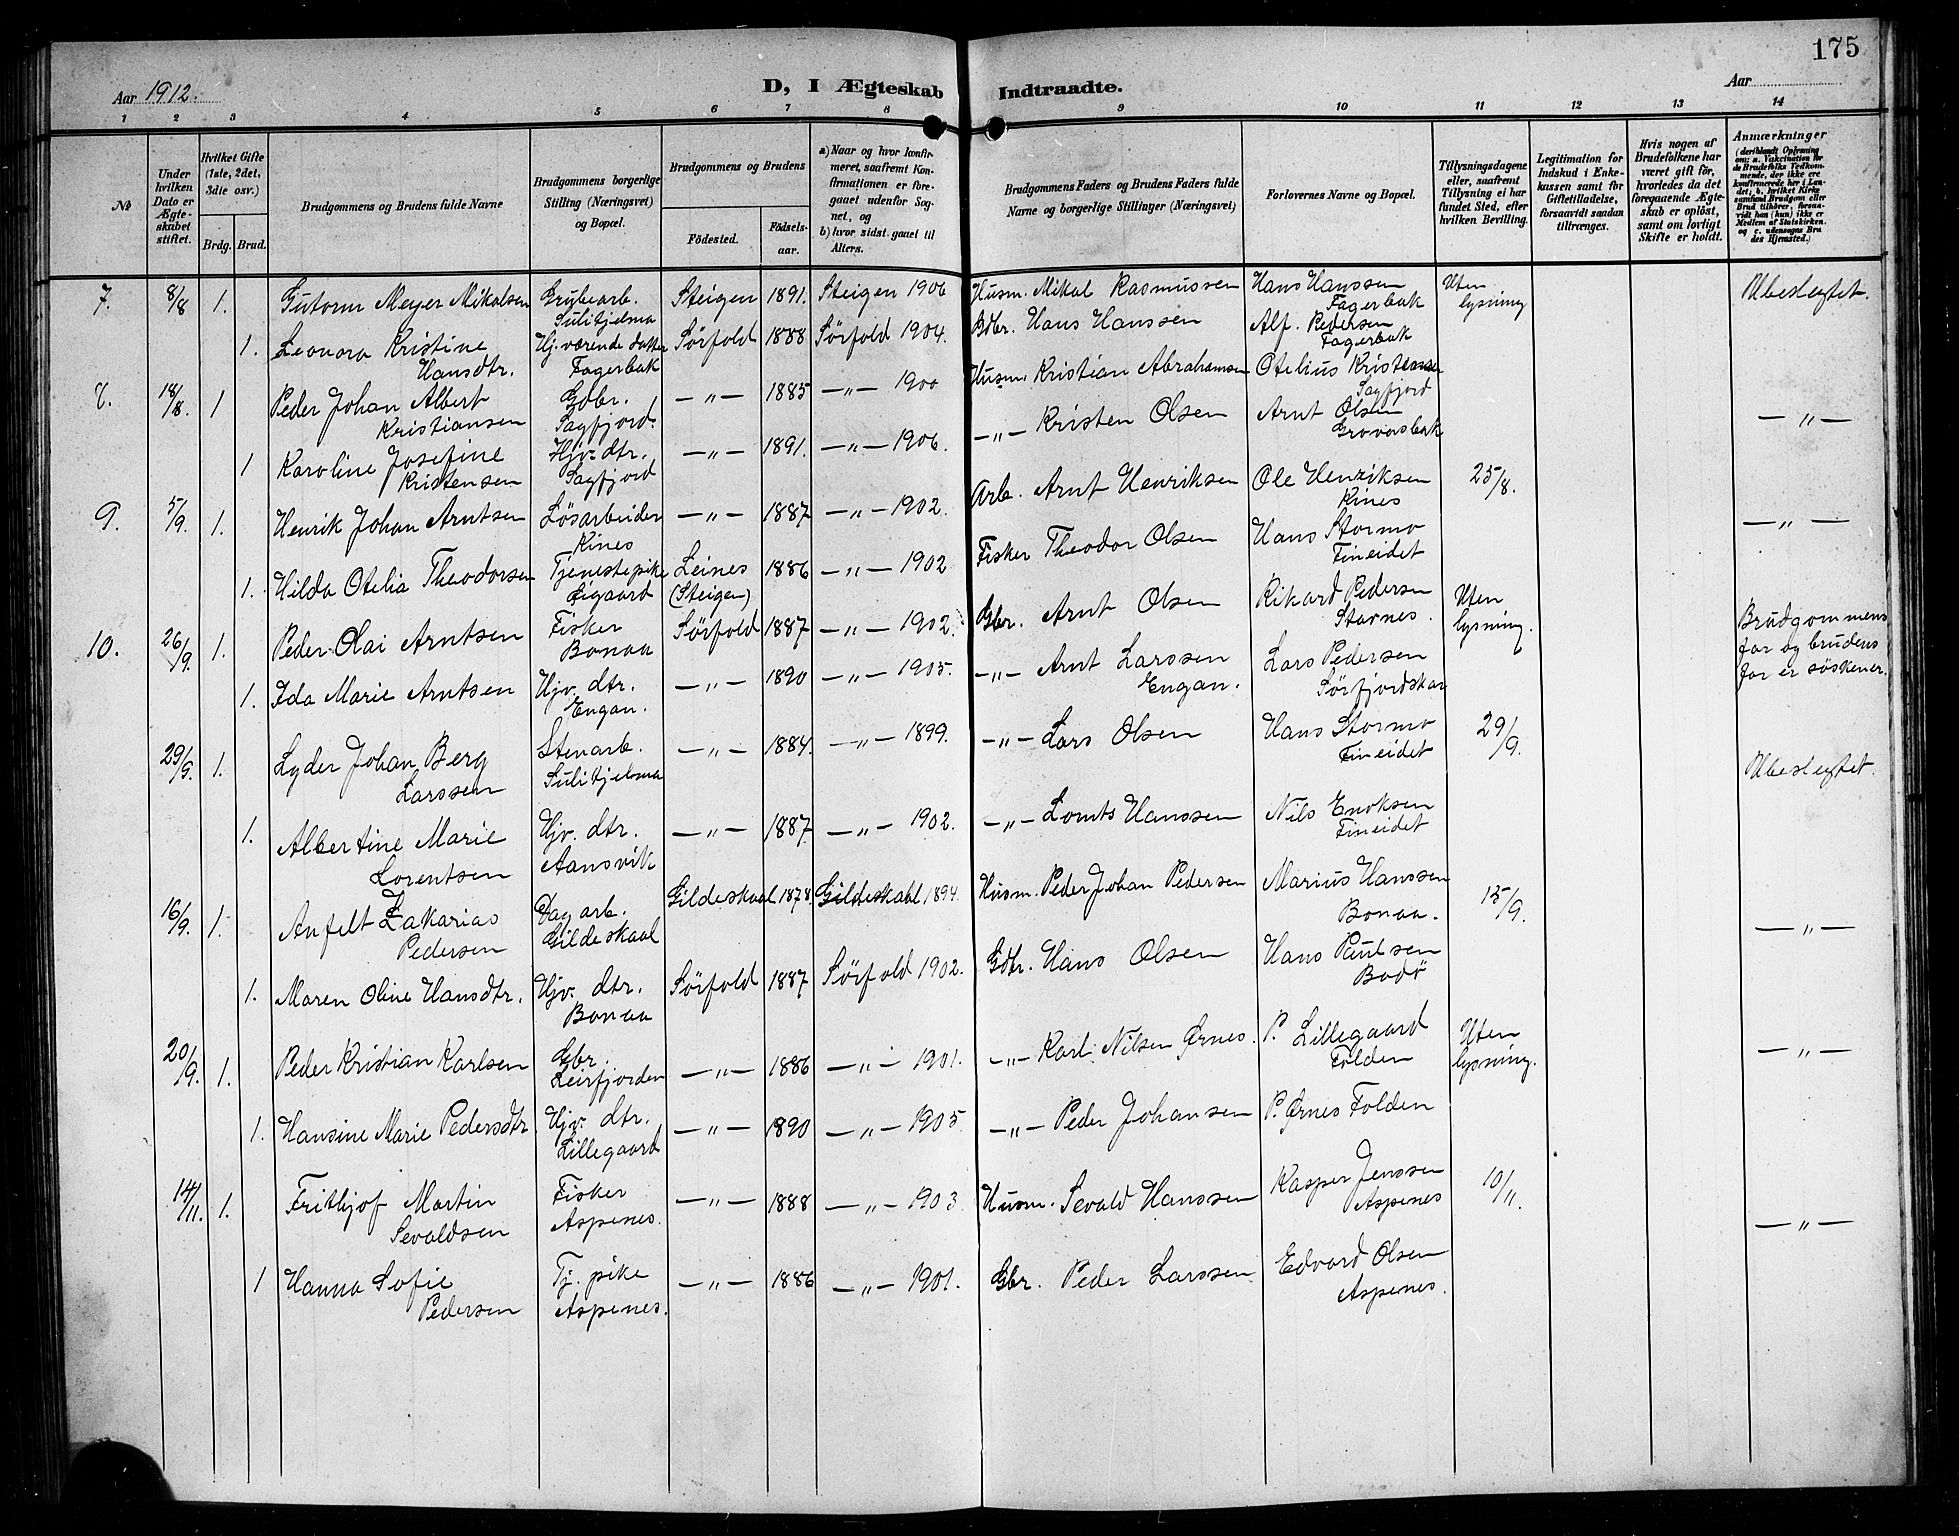 175
Aar 1912. D, I Ægteskab Indtraadte. Aar
1 2 3 4 5 6 7 8 9 10 11 12 13 14
No
Under hvilken Dato er Ægteskabet stiftet.
Hvilket Gifte (1ste, 2det, 3die osv.)
Brdg. Brud.
Brudgommens og Brudens fulde Navne
Brudgommens borgerlige Stilling (Næringsvei) og Bopæl.
Brudgommens og Brudens
Fødested. Fødselsaar.
a) Naar og hvor konfirmeret, saafremt Konfirmationen er foregaaet udenfor Sognet, og
b) hvor sidst gaaet til Alters.
Brudgommens Faders og Brudens Faders fulde Navne og borgerlige Stillinger (Næringsvei)
Forlovernes Navne og Bopæl.
Tillysningsdagene eller, saafremt Tillysning ei har fundet Sted, efter hvilken Bevilling.
Legitimation for Indskud i Enkekassen samt for Giftetilladelse, forsaavidt saadan tiltrænges.
Hvis nogen af Brudefolkene har været gift før, hvorledes da det foregaaende Ægteskab er opløst, samt om lovligt Skifte er holdt.
Anmærkninger
(deriblandt Oplysning om: a. Vakcination for de Brudefolks Vedkommende, der ikke ere konfirmerede her i Landet; b. hvilket Kirkesamfund Brudgom eller Brud tilhører, forsaavidt han (hun) ikke er Medlem af Statskirken, og c. udensogns Brudes Hjemsted.)
7. 8/8 1. Gutorm Meyer Mikalsen Grubearb. Sulitjelma Steigen 1891. Steigen 1906 Husm. Mikal Rasmussen Hans Hanssen Fagerbak Uten lysning Ubeslegtet.
1. Leonora Kristine Hansdtr. Hj. værende datter Fagerbak Sörfold 1888 Sörfold 1904. Hans Hanssen Alf. Pedersen Fagerbak
8. 18/8. 1 Peder Johan Albert Kristiansen Gdbr. Sagfjord. —„— 1885 —„— 1900 Husm. Kristian Abrahamsen Otelius Kristiansen Sagfjord —„—
1 Karoline Josefine Kristensen Hjv. dtr. Sagfjord —„— 1891. —„— 1906. —„— Kristen Olsen Arnt Olsen
9. 5/9. 1. Henrik Johan Arntsen Løsarbeider Rines —„— 1887 —„— 1902. Arb. Arnt Henriksen Ole Henriksen Rines 25/8. —„—
1. Hilda Otelia Theodorsen Tjenestepike Leines (Steigen) 1886 —„— 1902 Fisker Theodor Olsen Hans Stormo Fineidet
10. 26/9. 1. Peder Olai Arntsen Fisker Bonaa Sörfold 1887 —„— 1902. Gbr. Arnt Olsen Rikard Pedersen Stornes. Uten lysning. Brudgommens far og brudens far er søskener.
1. Ida Marie Arntsen Hjv. dtr. Engan. —„— 1890 —„— 1905. —„— Arnt Larssen Engan. Lars Pedersen Sørfjordskar
29/9. 1. Lyder Johan Berg Larssen Stenarb. Sulitjelma —„— 1884. —„— 1899. —„— Lars Olsen Hans Stormo Fineidet 29/9. Ubeslegtet.
1. Albertine Marie Lorentsen Hjv. dtr. Aansvik —„— 1887 —„— 1902. —„— Hanssen Nils Enoksen Fineidet
16/9. 1. Anfelt Zakarias Pedersen Dagarb. Gildeskaal Gildeskaal 1878 Gildeskaal 1894. Husm. Peder Johan Pedersen Marius Hanssen Bonaa. 15/9. —„—
1. Maren Oline Hansdtr. Hjv. dtr. Bonaa Sörfold 1887 Sörfold 1902. Gdbr. Hans Olsen Hans Paulsen Bodö
20/9. 1. Peder Kristian Karlsen Gbr. Leirfjorden —„— 1886 —„— 1901. —„— Karl Nilsen Ørnes. P. Lillegaard Folden Uten lysning. —„—
1. Hansine Marie Pedersdtr Hjv. dtr. Lillegaard —„— 1890 —„— 1905 —„— Peder Johansen P. Ørnes Folden
14/11. 1. Frithjof Martin Sevaldsen Fisker Aspenes. —„— 1888 —„— 1903 Husm. Sevald Hanssen Kasper Jenssen Aspenes 10/11. —„—
1 Hanna Sofie Pedersen Tj. pike Aspenes. —„— 1886 —„— 1901. Gbr. Peder Larssen Edvard Olsen Aspenes.